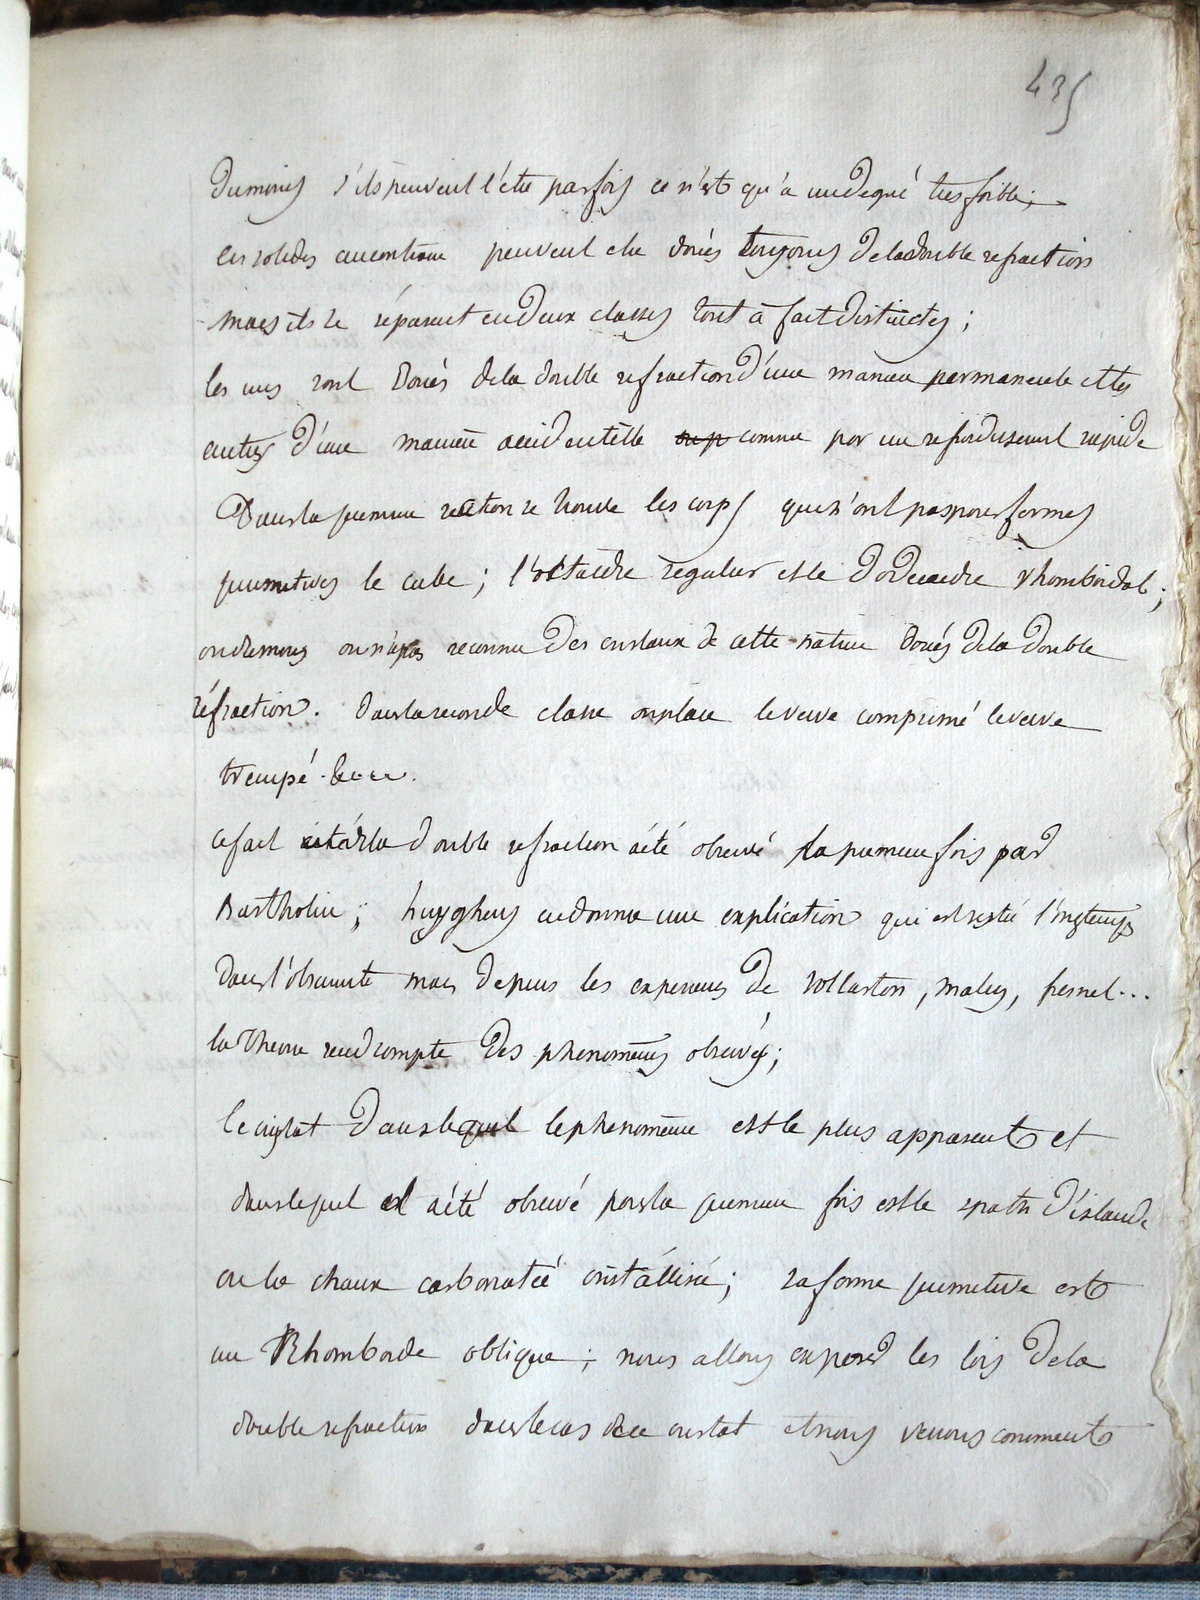 435
du moins s'ils peuvent l'etre parfois ce n'est qu'a un degré tres foible;
les solides au contraire peuvent etre doués toujours de la double refraction
mais ils se séparent en deux classes tout à fait distinctes;
les uns sont doués de la double refraction d'une maniere permanente et les
autres d'une maniere accidentelle comme par un refroidissement rapide
Dans la premiere section se trouve les corps qui n'ont pas pour formes
primitives le cube; l'octaedre régulier et le dodecaedre rhomboidal;
ou du moins on n'a pas reconnu des cristaux de cette nature doués de la double
réfraction. dans la seconde classe on place le verre comprimé le verre
trempé &...
ce fait de la double refraction a été observé la premiere fois par
Bartholin; huyghens en donna une explication qui est restée longtemps
dans l'obscurité mais depuis les experiences de vollaston, malus, fresnel...
la theorie rend compte des phenomenes observés;
le cristal dans lequel le phenomene est le plus apparent et
dans lequel il a été observé pour la premiere fois est le spath d'islande
ou la chaux carbonatée cristallisée; sa forme primitive est
un Rhomboide oblique; nous allons exposer les lois de la
double refraction dans le cas de ce cristal et nous verrons comment